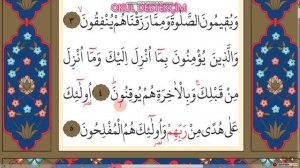 OKUL DESTEKÇİM
وَيُقِيمُونَ الصَّلٰوةَ وَمِمَّا رَزَقْنَاهُمْ يُنْفِقُونَۙ ﴿٣﴾
وَالَّذِينَ يُؤْمِنُونَ بِمَٓا اُنْزِلَ اِلَيْكَ وَمَٓا اُنْزِلَ
مِنْ قَبْلِكَۚ وَبِالْاٰخِرَةِ هُمْ يُوقِنُونَۜ ﴿٤﴾ اُو۬لٰٓئِكَ
عَلٰى هُدًى مِنْ رَبِّهِمْ وَاُو۬لٰٓئِكَ هُمُ الْمُفْلِحُونَ ﴿٥﴾